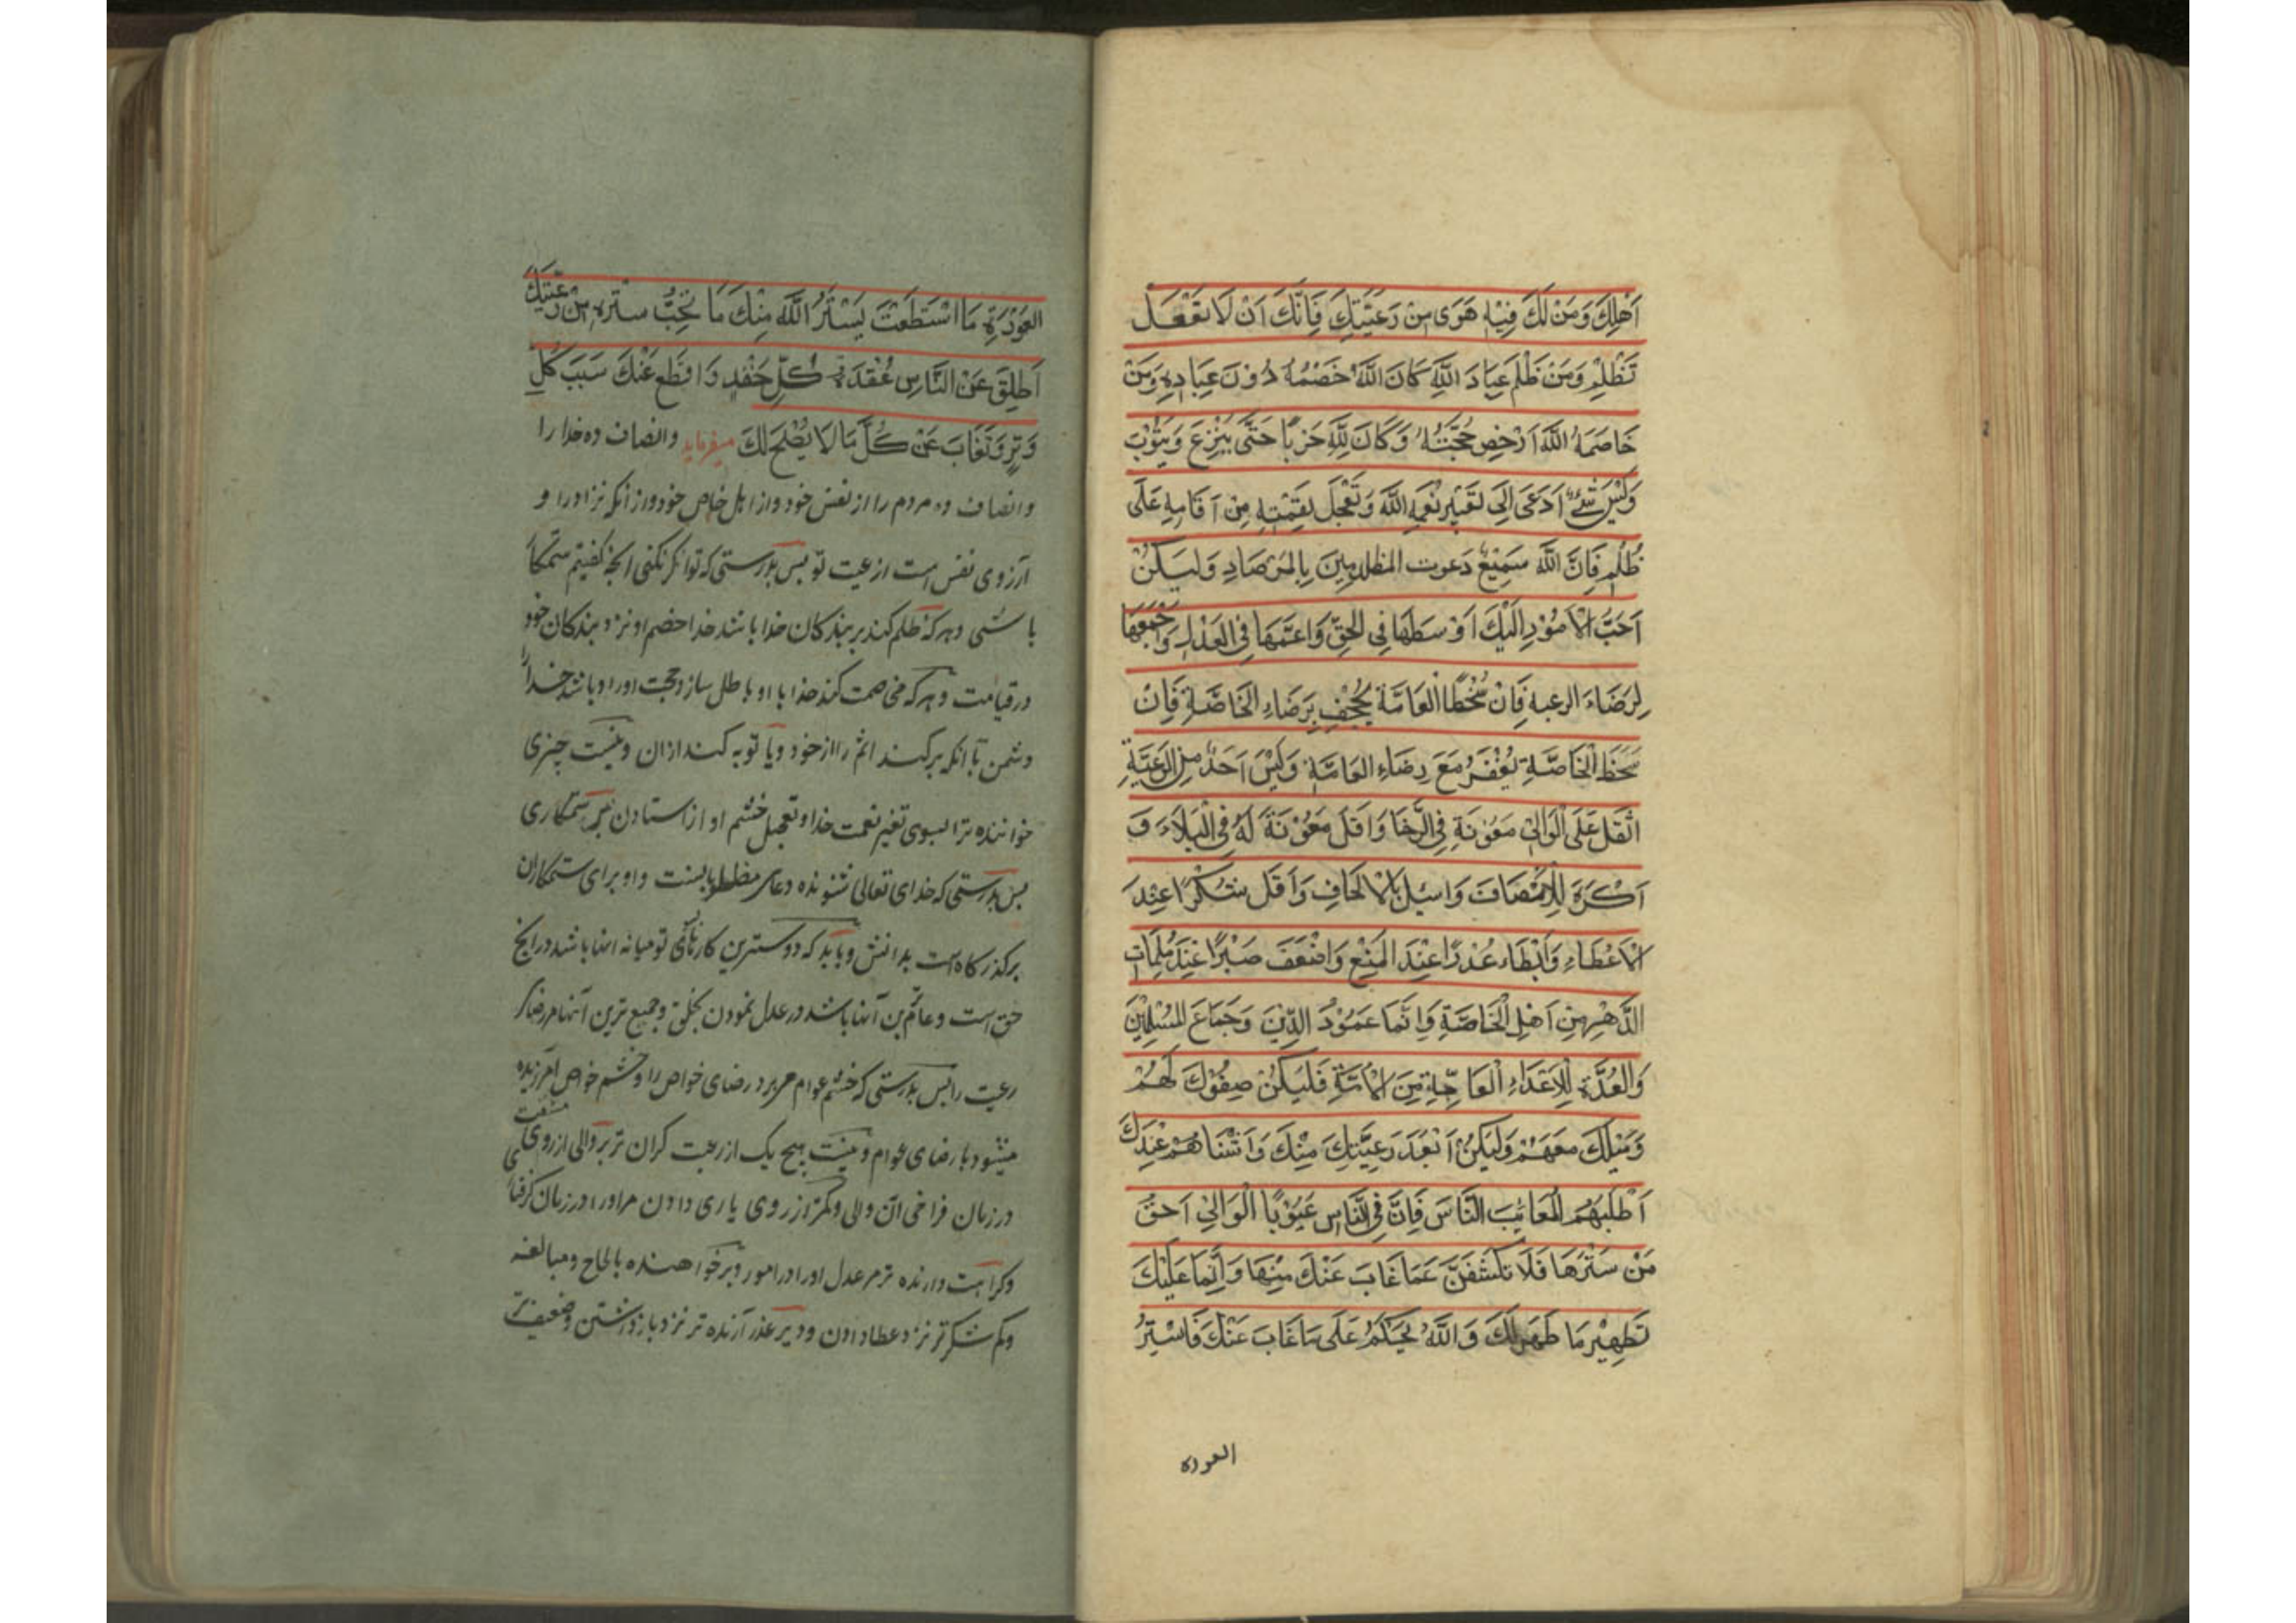 اَهْلِكَ وَمَنْ لَكَ فِيْهِ هَوَى مِنْ رَعِيَّتِكَ فَاِنَّكَ اَنْ لَا تَفْعَلْ
تَظْلِمْ وَمَنْ ظَلَمَ عِبَادَ اللَّهِ كَانَ اللَّهُ خَصْمُهُ دُوْنَ عِبَادِهِ وَمَنْ
خَاصَمَهُ اللَّهُ اَدْحَضَ حُجَّتَهُ وَكَانَ لِلَّهِ حَرْبًا حَتَّى يَنْزِعَ وَيَتُوْبَ
وَلَيْسَ شَيْءٌ اَدْعَى اِلَى تَغْيِيْرِ نِعْمَةِ اللَّهِ وَتَعْجِلِ نِقْمَتِهِ مِنْ اَقَامِهِ عَلَى
ظُلْمٍ فَاِنَّ اللَّهَ سَمِيْعُ دَعَوت المظلومِيْنَ بِالمَرْصَادِ وَلْيَكُنْ
اَحَبَّ الْاَمُوْرِ اِلَيْكَ اَوْسَطَهَا فِي الْحَقِّ وَاعَمَّهَا فِي الْعَدْلِ وَاَجْمَعَهَا
لِرَضَاءَ الرعيه فَاِنْ سُخْطًا الْعَامَّةَ يُجْحِفُ بِرَضَاءِ الْخَاصَّةِ فَاِنْ
سَخَطَ الْخَاصَّةِ يُغْفَرُ مَعَ رِضَاءِ الْعَامَّةِ وَلَيْسَ اَحَدٌ مِنَ الرَّعِيَّةِ
اثْقَلَ عَلَى الْوَالِيْ مَعُوْنَةِ فِي الرَّخَا وَاقَلَّ مَعُوْنَةَ لَهُ فِي الْبَلَاءَ وَ
اَكْرَهَ لِلْاِنْصَافَ وَاسْئِلَ بِالْاِلْحَافِ وَاَقَلَّ شُكْرًا عِنْدَ
الْاَعْطَاءِ وَاَبْطَاءَ عُذْرًا عِنْدَ الْمَنْعِ وَاضْعَفَ صَبْرًا عِنْدَ مُلِمَّاتِ
الدَّهْرِ مِنْ اَهْلِ الْخَاصَّةِ وَاِنَّمَا عَمُوْدُ الدِّيْنَ وَجَمَاعَ الْمُسْلِمِيْنَ
وَالْعُدَّةِ لِلْاَعْدَاءِ الْعَامَّةِ مِنَ الْاُمَّةِ فَلْيَكُنْ صِغُوْكَ لَهُمْ
وَمَيْلَكَ مَعَهَمْ وَلْيَكُنْ اَبْعَدَ رَعِيَّتِكَ مِنْكَ وَاَشْنَاهُمْ عِنْدَكَ
اَطْلَبَهُمْ لِمَعَائِبَ النَّاسَ فَاِنَّ فِي النَّاسِ عَيُوْبًا الْوَالِيْ اَحَقُّ
مَنْ سَتَرَهَا فَلَا تَكْشِفَنَّ عَمَّا غَابَ عَنْكَ مِنْهَا وَاِنَّمَا عَلَيْكَ
تَطْهِيْرِ مَا ظَهَر لَكَ وَاللَّهُ يَحْكُمُ عَلَى مَا غَابَ عَنْكَ فَاسْتِرُ
العوره
العَوْرَةِ مَا اسْتَطَعْتَ يَسْتُرُ اللَّهُ مِنْكَ مَا تُحِبُّ ستره مِنْ رَعِيَّتِكَ
اَطْلِقْ عَنْ النَّاسِ عُقْدَةَ كُلِّ حِقْدٍ وَاقْطَعْ عَنْكَ سَبَبَ كُلِّ
وِتْرٍ وَتَغَابَ عَنْ كُلِّ مَا لَا يَصْلَحُ لَكَ میفرماید وانصاف ده خدا را
وانصاف ده مردم را از نفس خود واز اهل خاص خود واز آنکه نزا او را و
آرزوی نفس است از عیت تو بس بدرستی که تو اگر نکنی انچه کفتیم ستمکا
باشی وهر که ظلم کند بر بندکان خدا باشد خدا خصم او نزد بندکان خود
در قیامت وهر که مخاصمت کند خدا با او باطل سازد حجت او را وباشد خدا را
دشمن تا انکه برکند انثر را از خود ویا توبه کند ازان ونیست چیزی
خواننده ترا بسوی تغیر نعمت خدا وتعجیل خشم او از استادن بر ستمکاری
بس بدرستی که خدای تعالی شنونده دعای مظلومانست واو برای ستمکاران
برکذرکاه است بدانش وباید که دوسترین کارهای تو میانه انها باشد در انچه
حق است وعام ترین آنها باشد در عدل نمودن بخلق وجمیع ترین آنها مر رضا
رعیت را بس بدرستی که خشم عوام میبرد رضای خواص را وخشم خواص امرزیده
میشود با رضای عوام ونیست هیچ یک از رعیت کران تر بر والی از روی مشقت
در زمان فراخی آن والی وکمتر از روی یاری دادن مر او را در زمان کرفتا
وکراهت دارنده تر مر عدل او را در امور وبر خواهنده بالحاح ومبالغه
وکم شکر تر نزد عطا دادن ودیر عذر آرنده تر نزد باز داشتن وضعیف تر